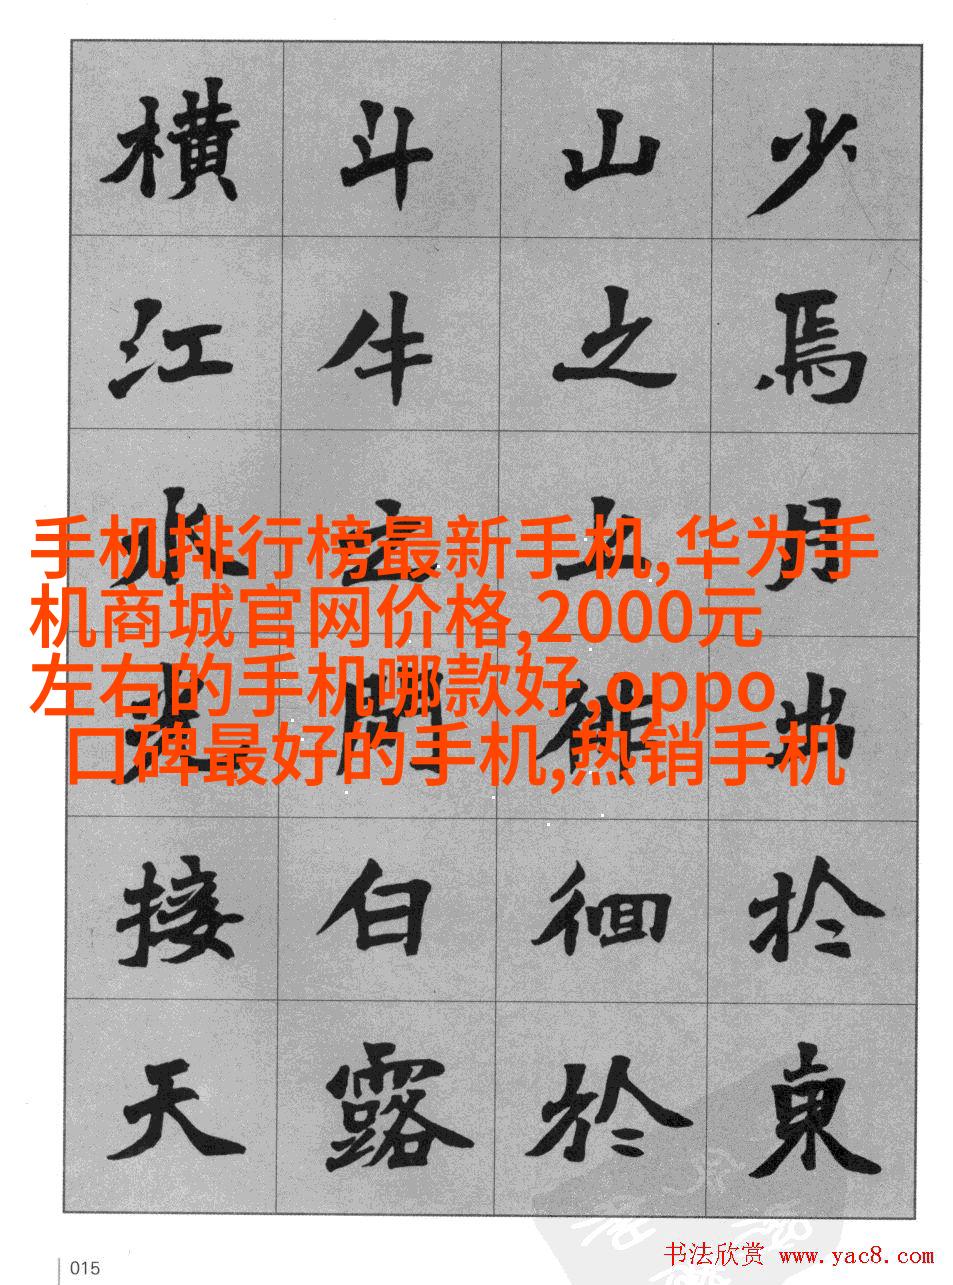 少焉月出於東
山之上徘徊於
斗牛之間白露
橫江水光接天
手机排行榜最新手机,华为手
机商城官网价格,2000元
左右的手机哪款好,oppo
口碑最好的手机,热销手机
015
书法欣赏 www.yac8.com